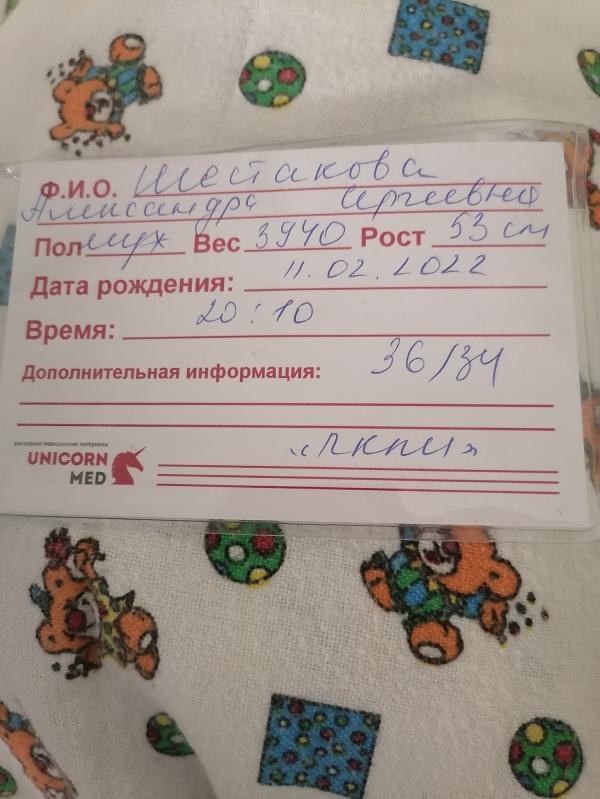 Ф.И.О. Шестакова
Александра Сергеевна
Пол муж Вес 3940 Рост 53 см
Дата рождения: 11.02.2022
Время: 20:10
Дополнительная информация: 36/34
расходные медицинские материалы
UNICORN
MED